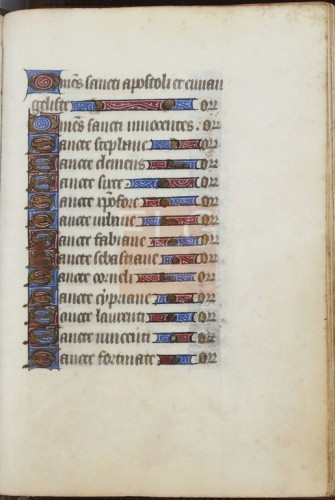 Omēs sancti apostoli et euuan
geliste Orr
Omēs sancti innocentes. Orr
Sancte stephane Orr
Sancte clemens Orr
Sancte sixte Orr
Sancte xp̄ofore Orr
Sancte urbane Orr
Sancte fabiane Orr
Sancte sebastiane Orr
Sancte corneli Orr
Sancte cypriane Orr
Sancte laurenti Orr
Sancte uincenti Orr
Sancte fortunate Orr